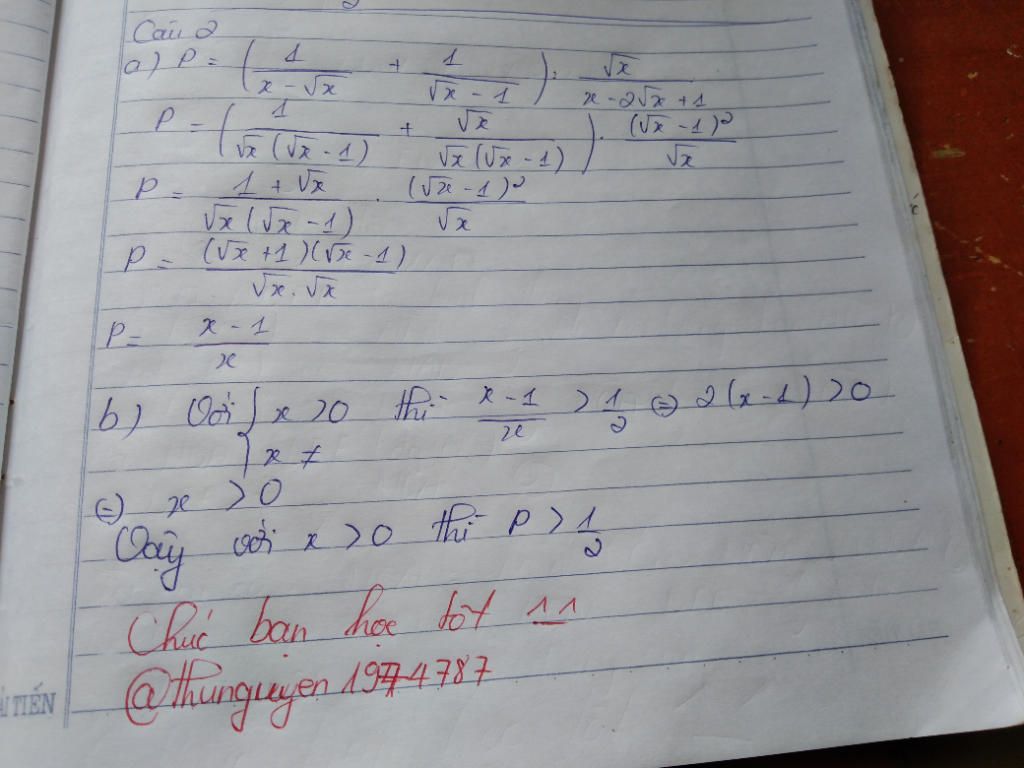 Câu 2
a) P = (1/(x - √x) + 1/(√x - 1)) : √x/(x - 2√x + 1)
P = (1/(√x(√x - 1)) + √x/(√x(√x - 1))) . (√x - 1)²/√x
P = (1 + √x)/(√x(√x - 1)) . (√x - 1)²/√x
P = (√x + 1)(√x - 1)/(√x . √x)
P = (x - 1)/x
b) Với { x > 0 thì (x - 1)/x > 1/2 ⇔ 2(x - 1) > 0
x ≠
⇔ x > 0
Vậy với x > 0 thì P > 1/2
Chúc bạn học tốt 11
@thunguyen1974787
ẢI TIẾN